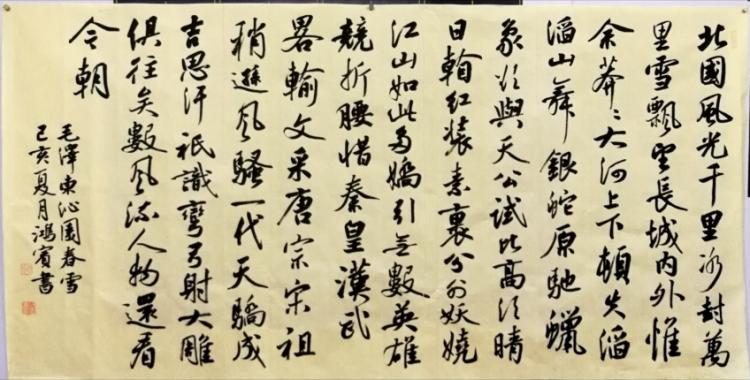 北國風光千里冰封萬
里雪飄望長城內外惟
余莽〻大河上下頓失滔
滔山舞銀蛇原馳蠟
象欲與天公試比高須晴
日紅裝素裹分外妖嬈
江山如此多嬌引無數英雄
競折腰惜秦皇漢武
畧輸文采唐宗宋祖
稍遜風騷一代天驕成
吉思汗祇識彎弓射大雕
俱往矣數風流人物還看
今朝
毛澤東沁園春雪
己亥夏月鴻賓書